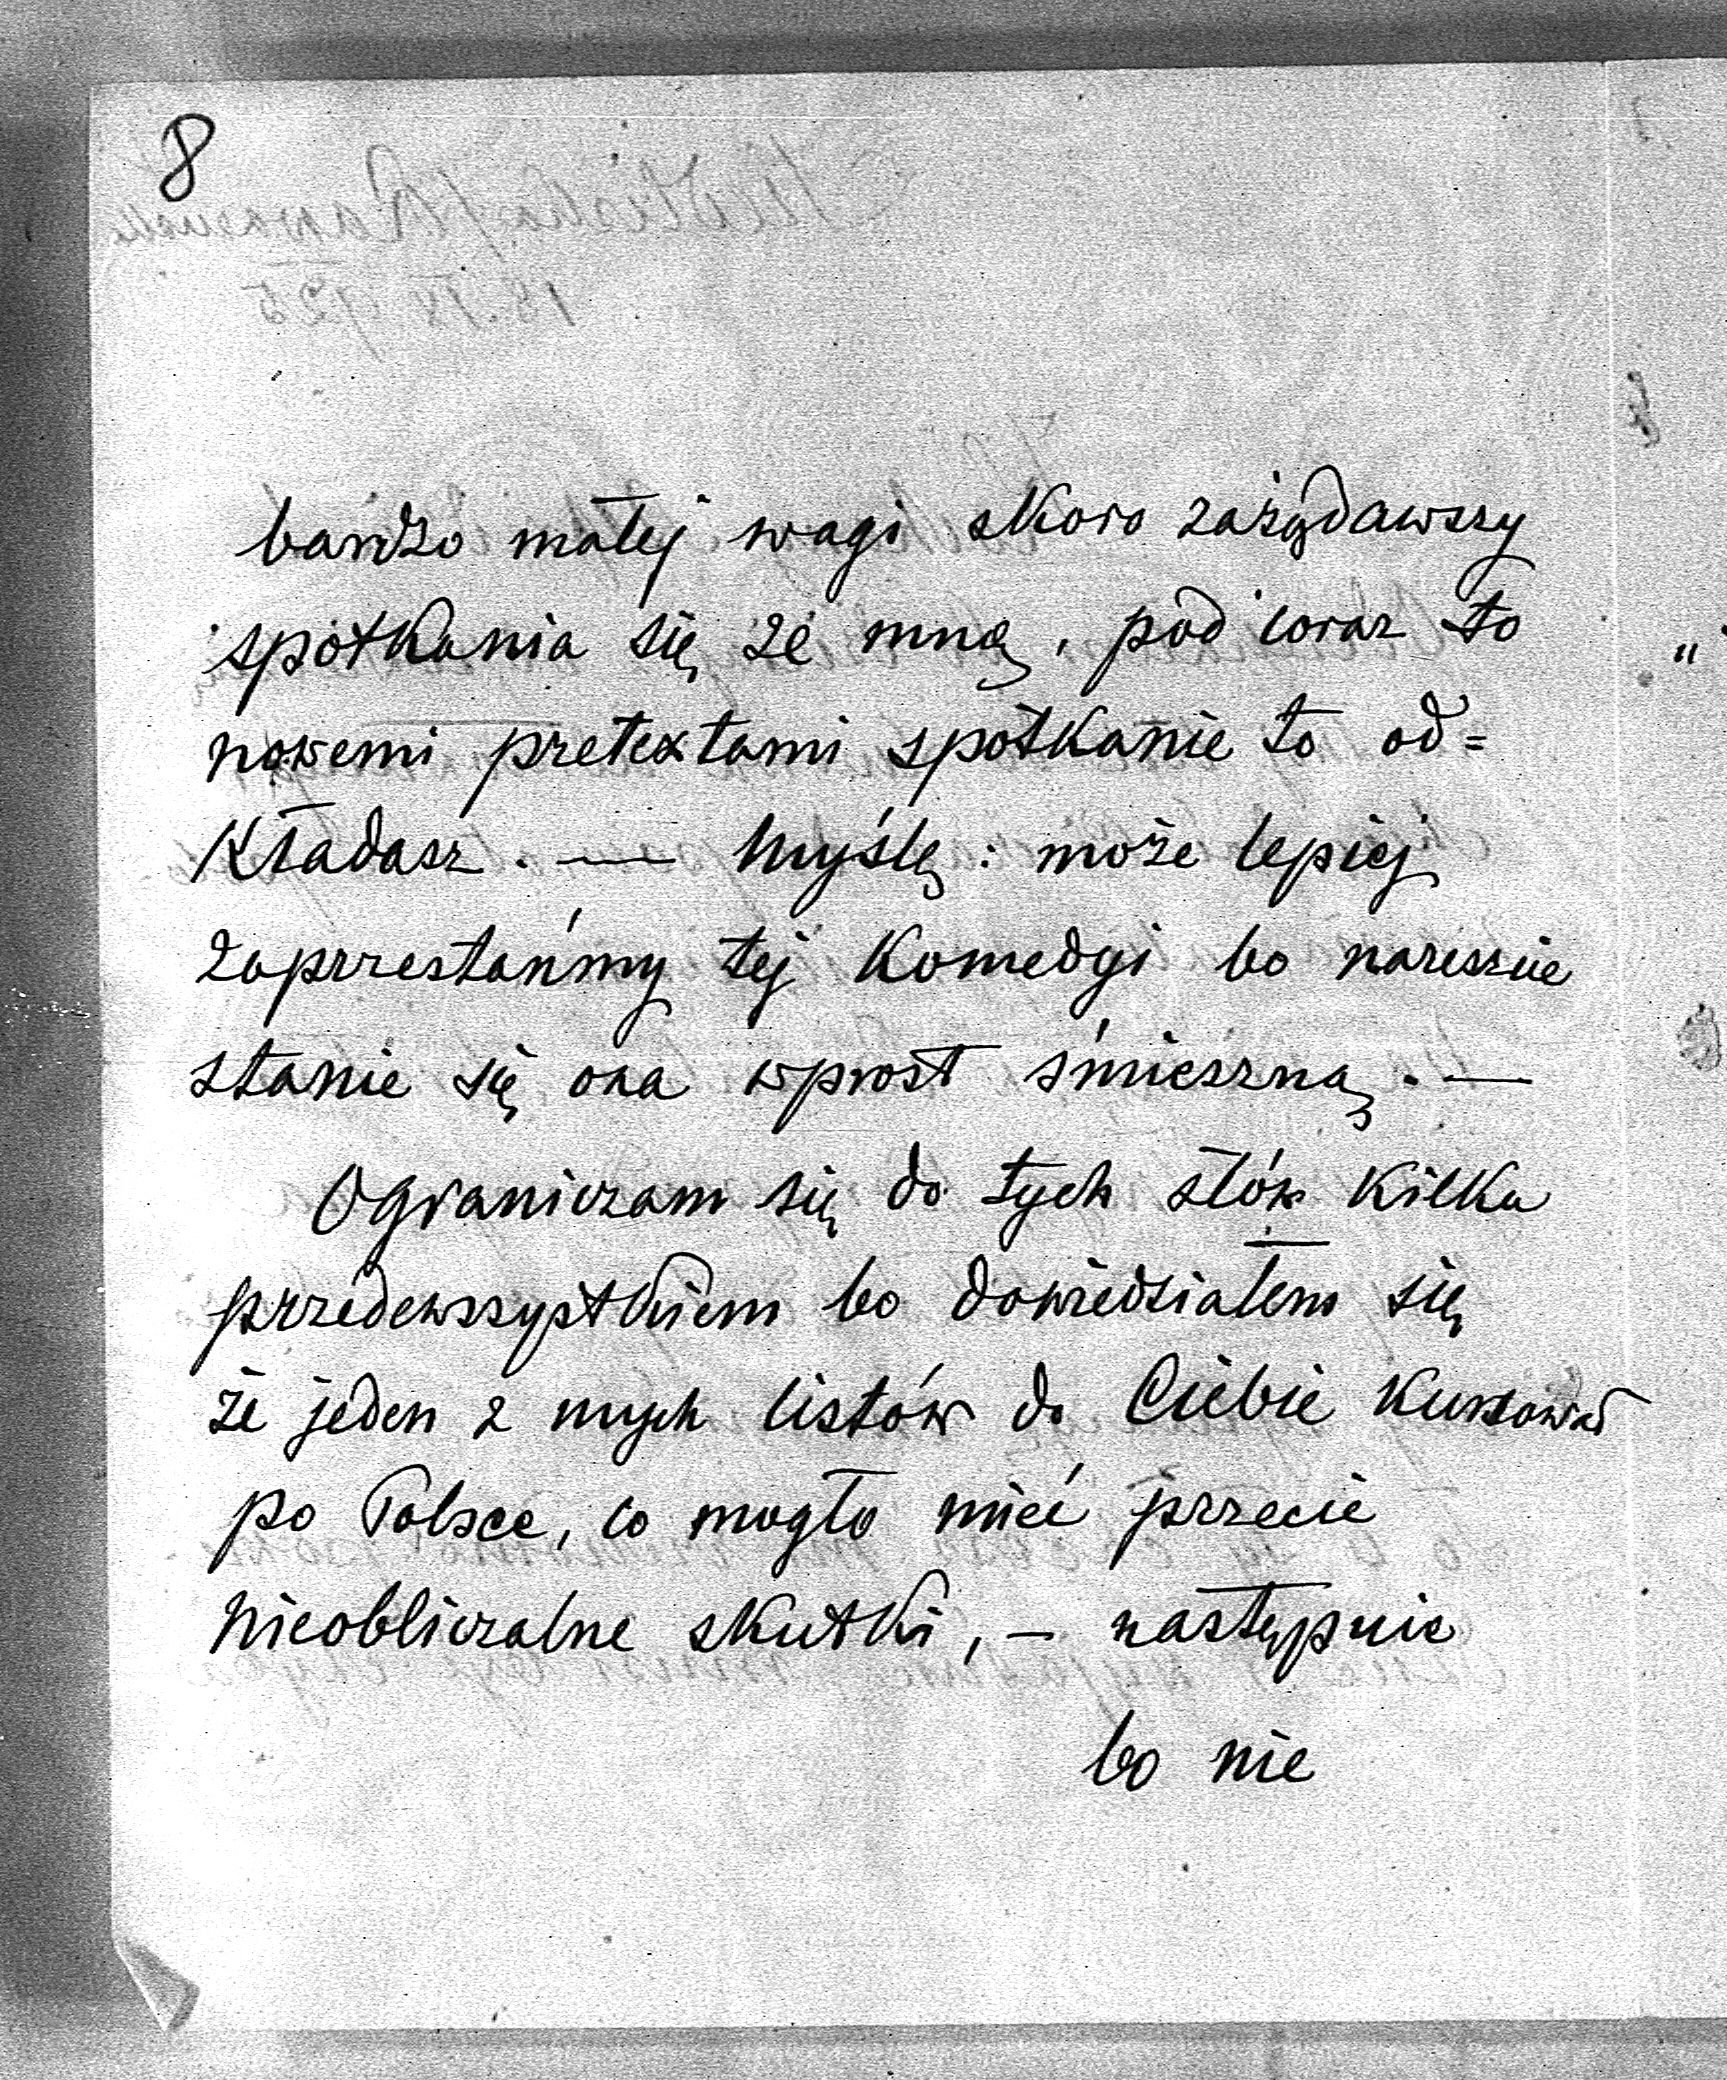 8
bardzo małej wagi skoro zażądawszy
spotkania się ze mną, pod coraz to
nowemi pretextami spotkanie to od=
kładasz. — Myślę: może lepiej
zaprzestańmy tej komedyi bo nareszcie
stanie się ona wprost śmieszną. —
Ograniczam się do tych słów kilku
przedewszystkiem bo dowiedziałem się
że jeden z mych listów do Ciebie kursował
po Polsce, co mogło mieć przecie
nieobliczalne skutki, — następnie
bo nie